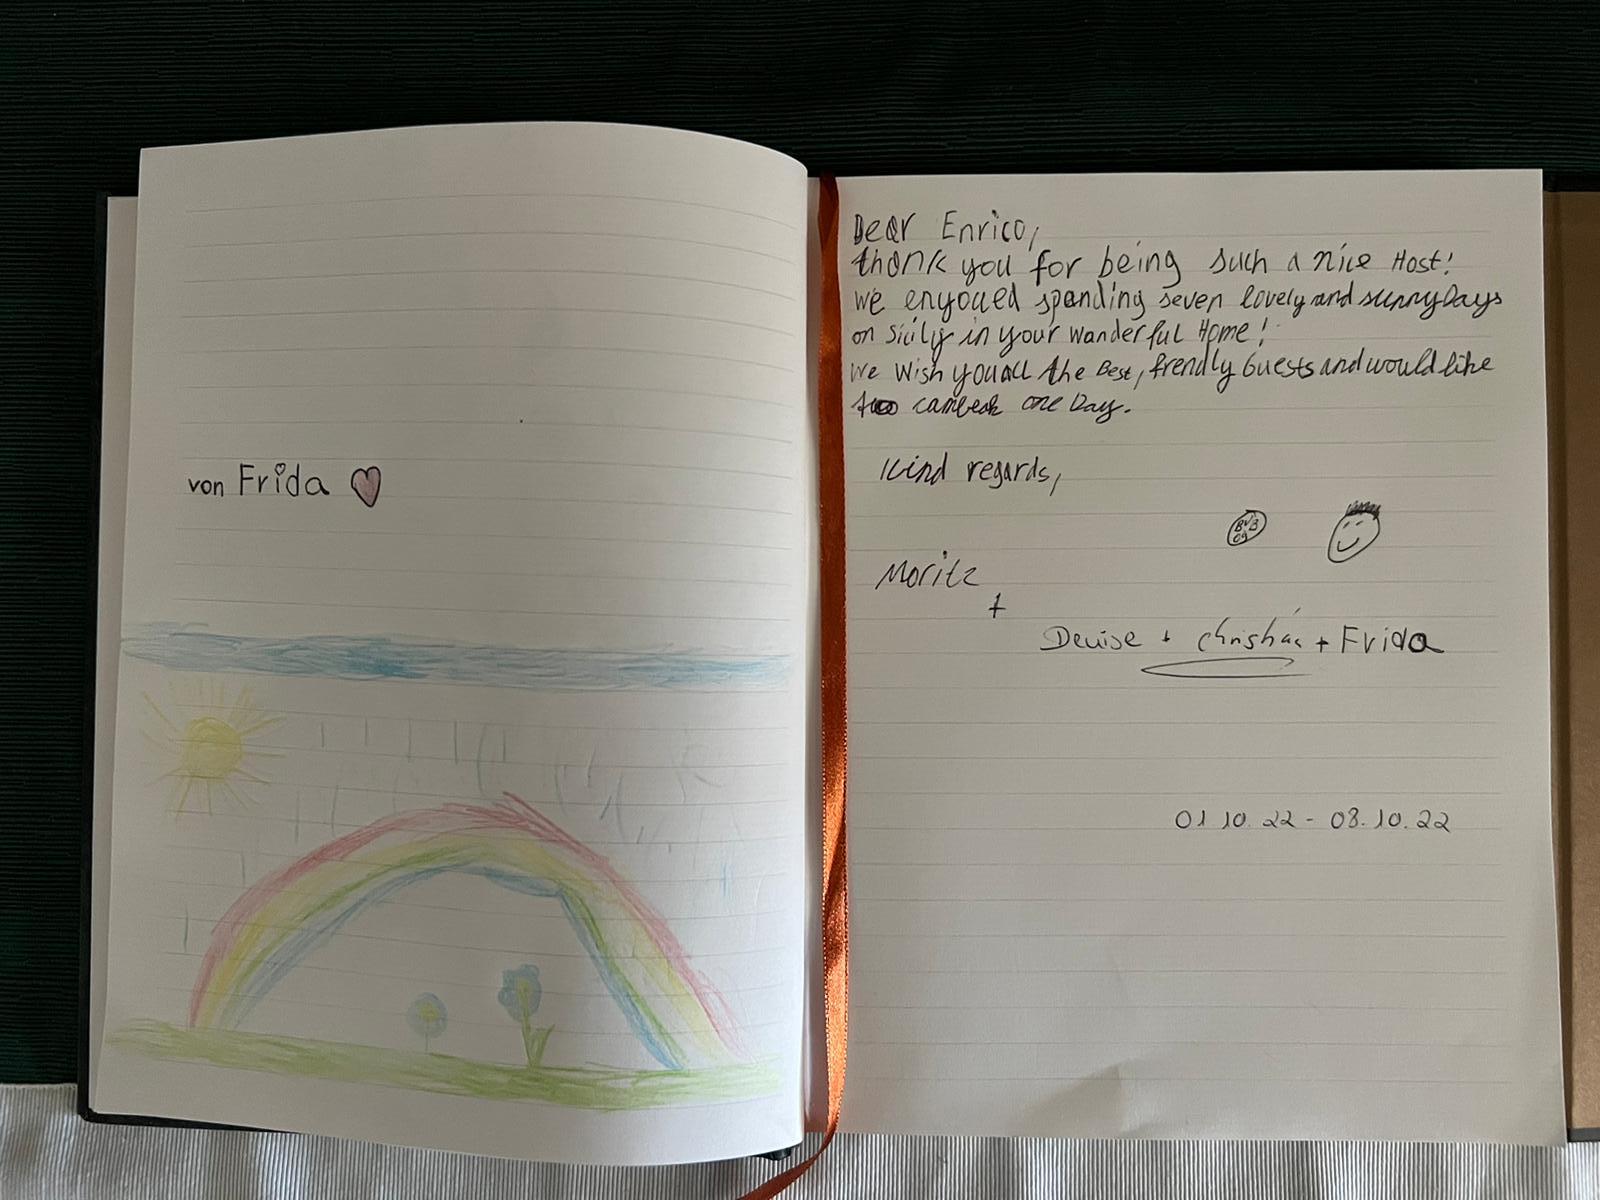 von Frida
Dear Enrico,
thank you for being such a nice Host!
we enyoued spending seven lovely and sunny Days
on Sicily in your wanderful Home!
we wish you all the Best, frendly Guests and would like
too cambeak one Day.
Kind regards,
BVB
09
Moritz
+
Denise + Christian + Frida
01.10.22 - 08.10.22